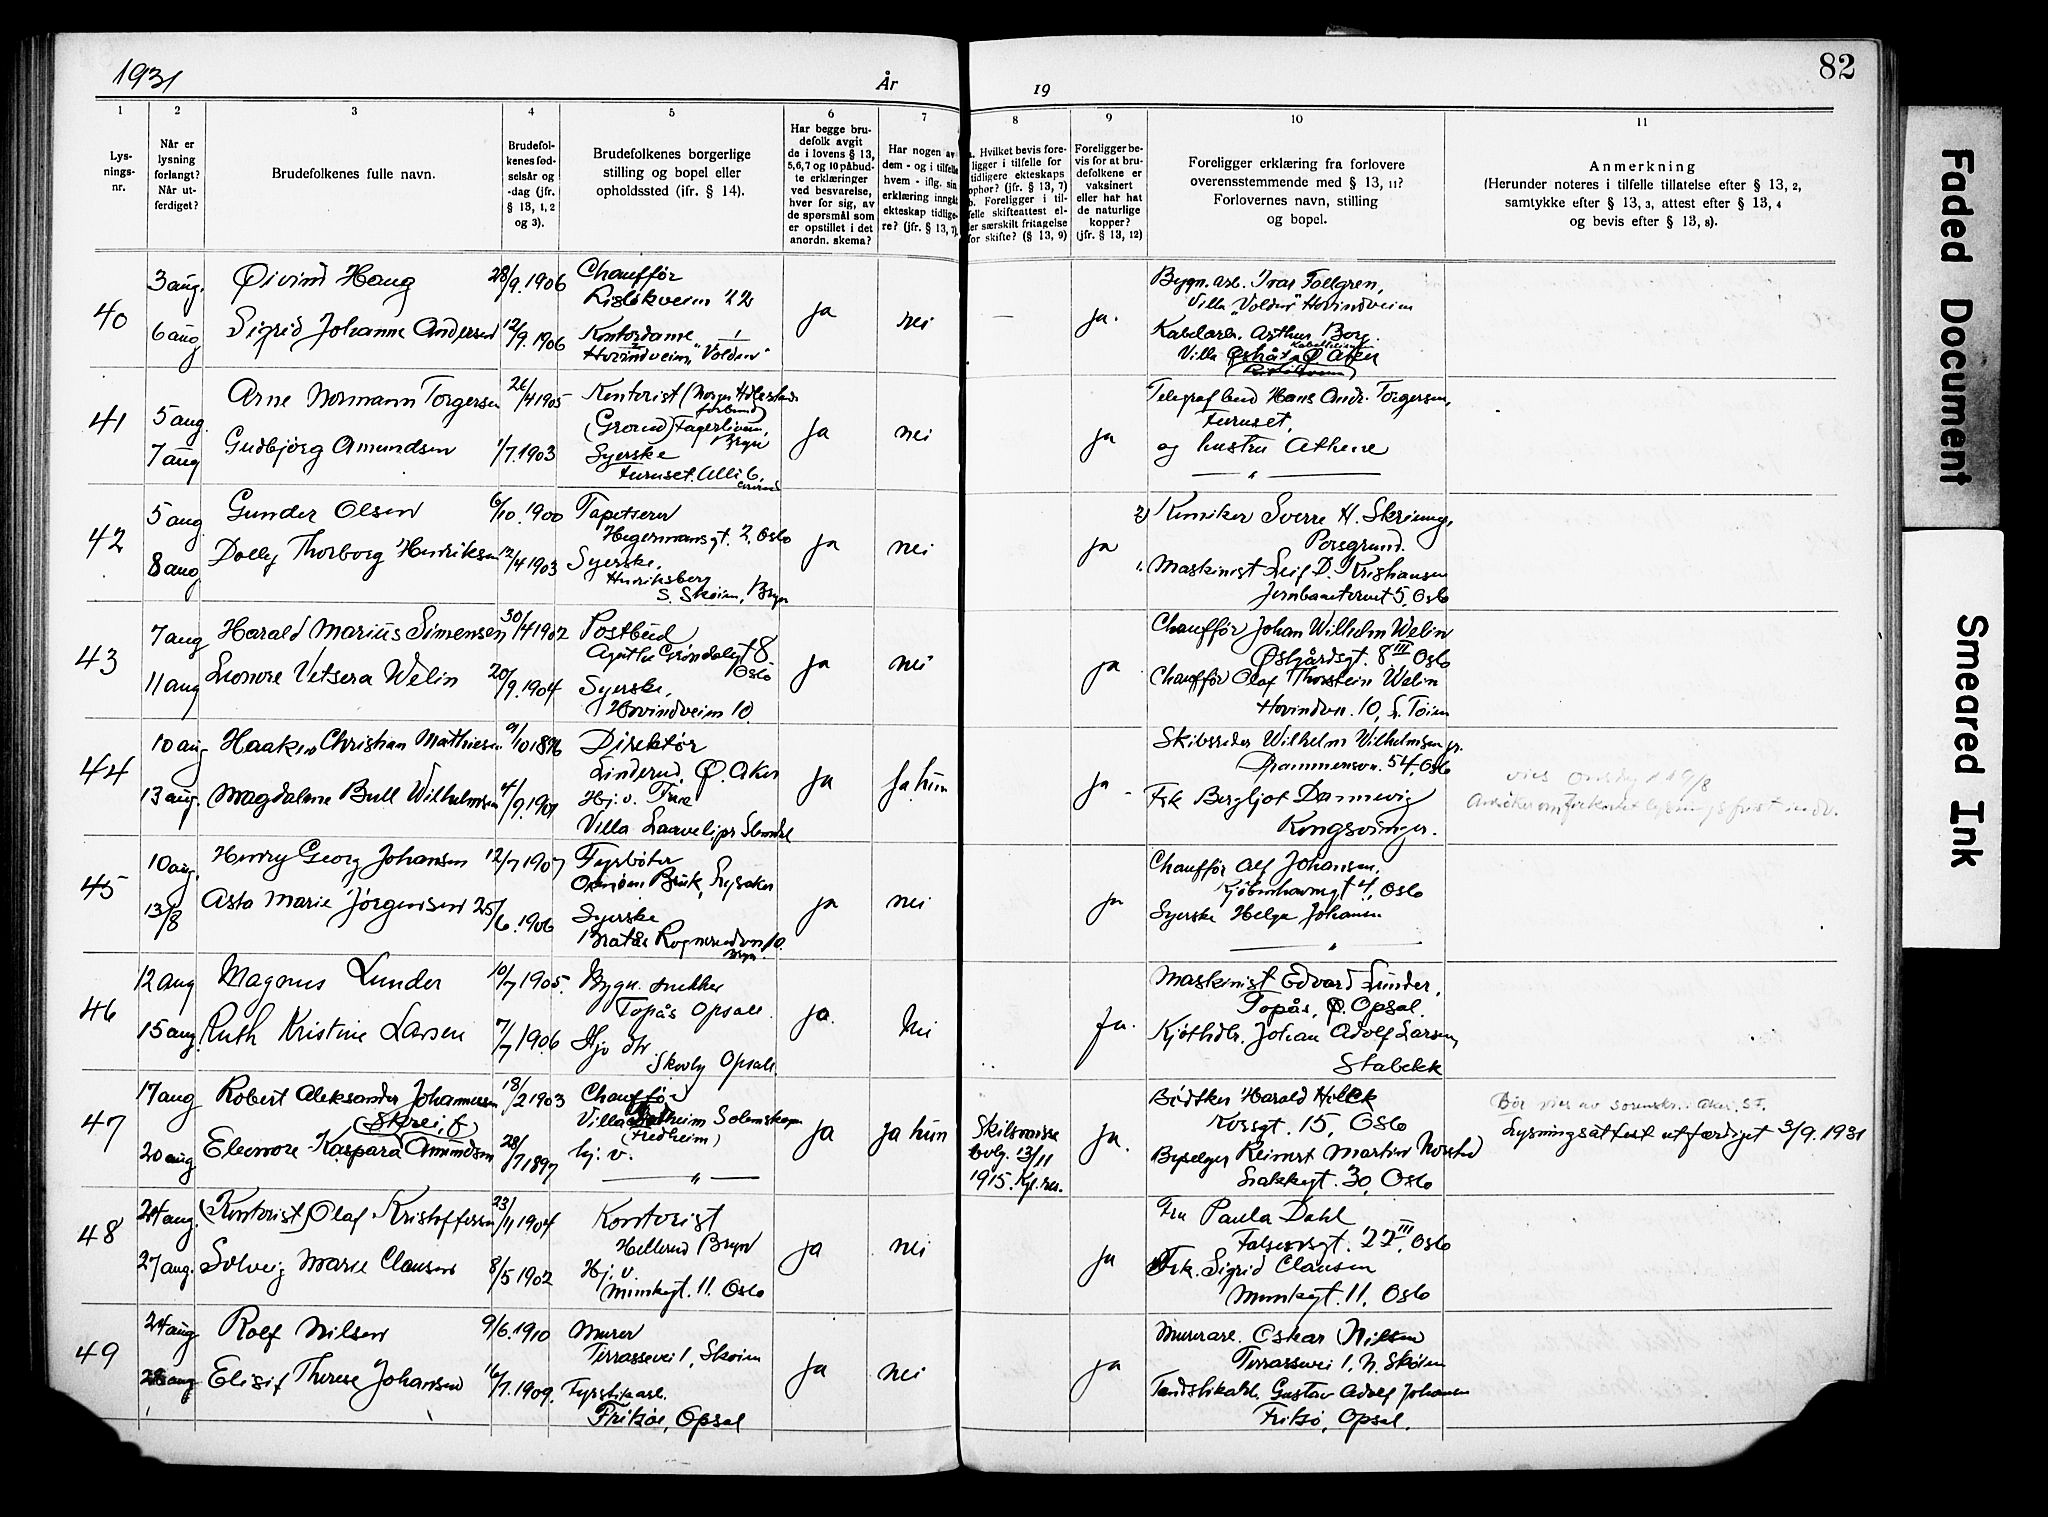 1931
År
19
82
1
2
3
4
5
6
7
8
9
10
11
Lys-
nings-
nr.
Når er
lysning
forlangt?
Når ut-
ferdiget?
Brudefolkenes fulle navn.
Brudefol-
kenes fød-
selsår og
-dag (jfr.
§ 13, 1, 2
og 3).
Brudefolkenes borgerlige
stilling og bopel eller
opholdssted (ifr. § 14).
Har begge bru-
defolk avgit
de i lovens § 13,
5,6,7 og 10 påbud-
te erklæringer
ved besvarelse,
hver for sig, av
de spørsmål som
er opstillet i det
anordn. skema?
Har nogen av
dem - og i tilfelle
hvem - iflg. sin
erklæring inngåt
ekteskap tidlige-
re? (jfr. § 13, 7).
a. Hvilket bevis fore-
ligger i tilfelle for
tidligere ekteskaps
ophør? (jfr. § 13, 7)
b. Foreligger i til-
felle skifteattest el-
ler særskilt fritagelse
for skifte? (§ 13, 9)
Foreligger be-
vis for at bru-
defolkene er
vaksinert
eller har hat
de naturlige
kopper?
(jfr. § 13, 12)
Foreligger erklæring fra forlovere
overensstemmende med § 13, 11?
Forlovernes navn, stilling
og bopel.
Anmerkning
(Herunder noteres i tilfelle tillatelse efter § 13, 2,
samtykke efter § 13, 3, attest efter § 13, 4
og bevis efter § 13, 8).
40
3 aug.
6 aug
Øivind Haug
Sigrid Johanne Andersen
28/9.1906
12/9.1906
Chauffør
Risløkveien 22
Kontordame
Hovindveien "Volden"
ja
nei
—
ja.
Bygn. arb. Ivar Follgren,
Villa "Volden" Hovindveien
Kabelarb. Arthur Borg.
Villa Ø. Aker
41
5 aug.
7 aug
Arne Normann Torgersen
Gudbjørg Amundsen
26/4 1905
1/7.1903
Kontorist (Norges
forbund)
(Grorud) Fagerliveien,
Bryn
Syerske
Furuset. Alli 6.
Grorud
ja
nei
ja
Telegrafbud Hans Andr. Torgersen,
Furuset,
og hustru Athene
— " —
42
5 aug
8 aug
Gunder Olsen
Dolly Thorborg Henriksen
6/10.1900
12/4 1903
Tapetserer
Hegermansgt. 2, Oslo
Syerske,
Henriksberg
S. Skøien, Bryn
ja
nei
ja
2) Kemiker Sverre H. Skriung,
Porsgrund.
1. Maskinist Leif D. Kristiansen
Jernbanetorvet 5, Oslo
43
7 aug
11 aug
Harald Marius Simensen
Leonore Vetsera Welin
30/4 1902
20/9.1904
Postbud
Agathe Grøndalsgt 8
Oslo
Syerske,
Hovindveien 10
ja
nei
ja
Chauffør Johan Wilhelm Welin
Østgårdsgt. 8 III Oslo
Chauffør Olaf Thorstein Welin
Hovindvn. 10, L. Tøien
44
10 aug
13 aug.
Haaken Christian Mathiesen
Magdalene Bull Wilhelmsen
9/10 1896
4/9.1901
Direktør
Linderud, Ø. Aker
Hj. v. Frue
Villa Slemdal
ja
ja hun
ja
Skibsreder Wilhelm Wilhelmsen jr.
Drammensvn. 54, Oslo
Frk Bergljot Dannevig
Kongsvinger.
vies Onsdag d 19/8
45
10 aug.
13/8
Henry Georg Johansen
Asta Marie Jørgensen
12/7 1907
25/6.1906
Fyrbøter
Bruk, Lysaker
Syerske
Bratås Rognerudvn 10.
Bryn
ja
nei
ja
Chauffør Alf Johansen,
Kjøbenhavnsgt 4, Oslo
Syerske Helga Johansen
— " —
46
12 aug
15 aug.
Magnus Lunder
Ruth Kristine Larsen
10/7 1905.
7/7 1906
Bygn. snekker
Topås Opsal.
Hjv dtr
Skovly Opsal.
ja.
Nei
ja.
Maskinist Edvard Lunder,
Topås, Ø. Opsal.
Kjøthdlr. Johan Adolf Larsen,
Stabekk
47
17 aug
20 aug
Robert Aleksander Johannessen
(Skrei, f)
Eleonore Kaspara Amundsen
18/2 1903
28/7 1897
Chauffør
Villa Solemskogen
(Fredheim)
hj. v.
— " —
ja
ja hun
Skilsmisse
bvlg. 13/11
1915. Kgl. res.
ja.
Bødtker Harald Holck
Rossgt. 15, Oslo
Byselger Reimert Martin
Lakkegt. 30, Oslo
Bør vies av sorenskr. i Aker, S.F.
Lysningsattest utfærdiget 3/9. 1931
48
24 aug.
27 aug.
(Kontorist) Olaf Kristoffersen
Solveig Marie Clausen
23/11 1904
8/5 1902
Kontorist
Hellerud Bryn
Hj. v.
Munkegt. 11. Oslo
ja
nei
ja
Fru Paula Dahl
Falsensgt. 22 III, Oslo
Frk. Sigrid Clausen
Munkegt. 11, Oslo
49
24 aug
28 aug
Rolf Nilsen
Elisif Therese Johansen
9/6.1910
16/7.1909.
Murer
Terrassevei 1, Skøien
Fyrstikarb.
Friksø, Opsal
ja
nei
ja
Murerarb. Oskar Nilsen
Terrassevei 1, N. Skøien
Tandstikarb. Gustav Adolf Johansen
Friksø, Opsal.
Faded Document
Smeared Ink